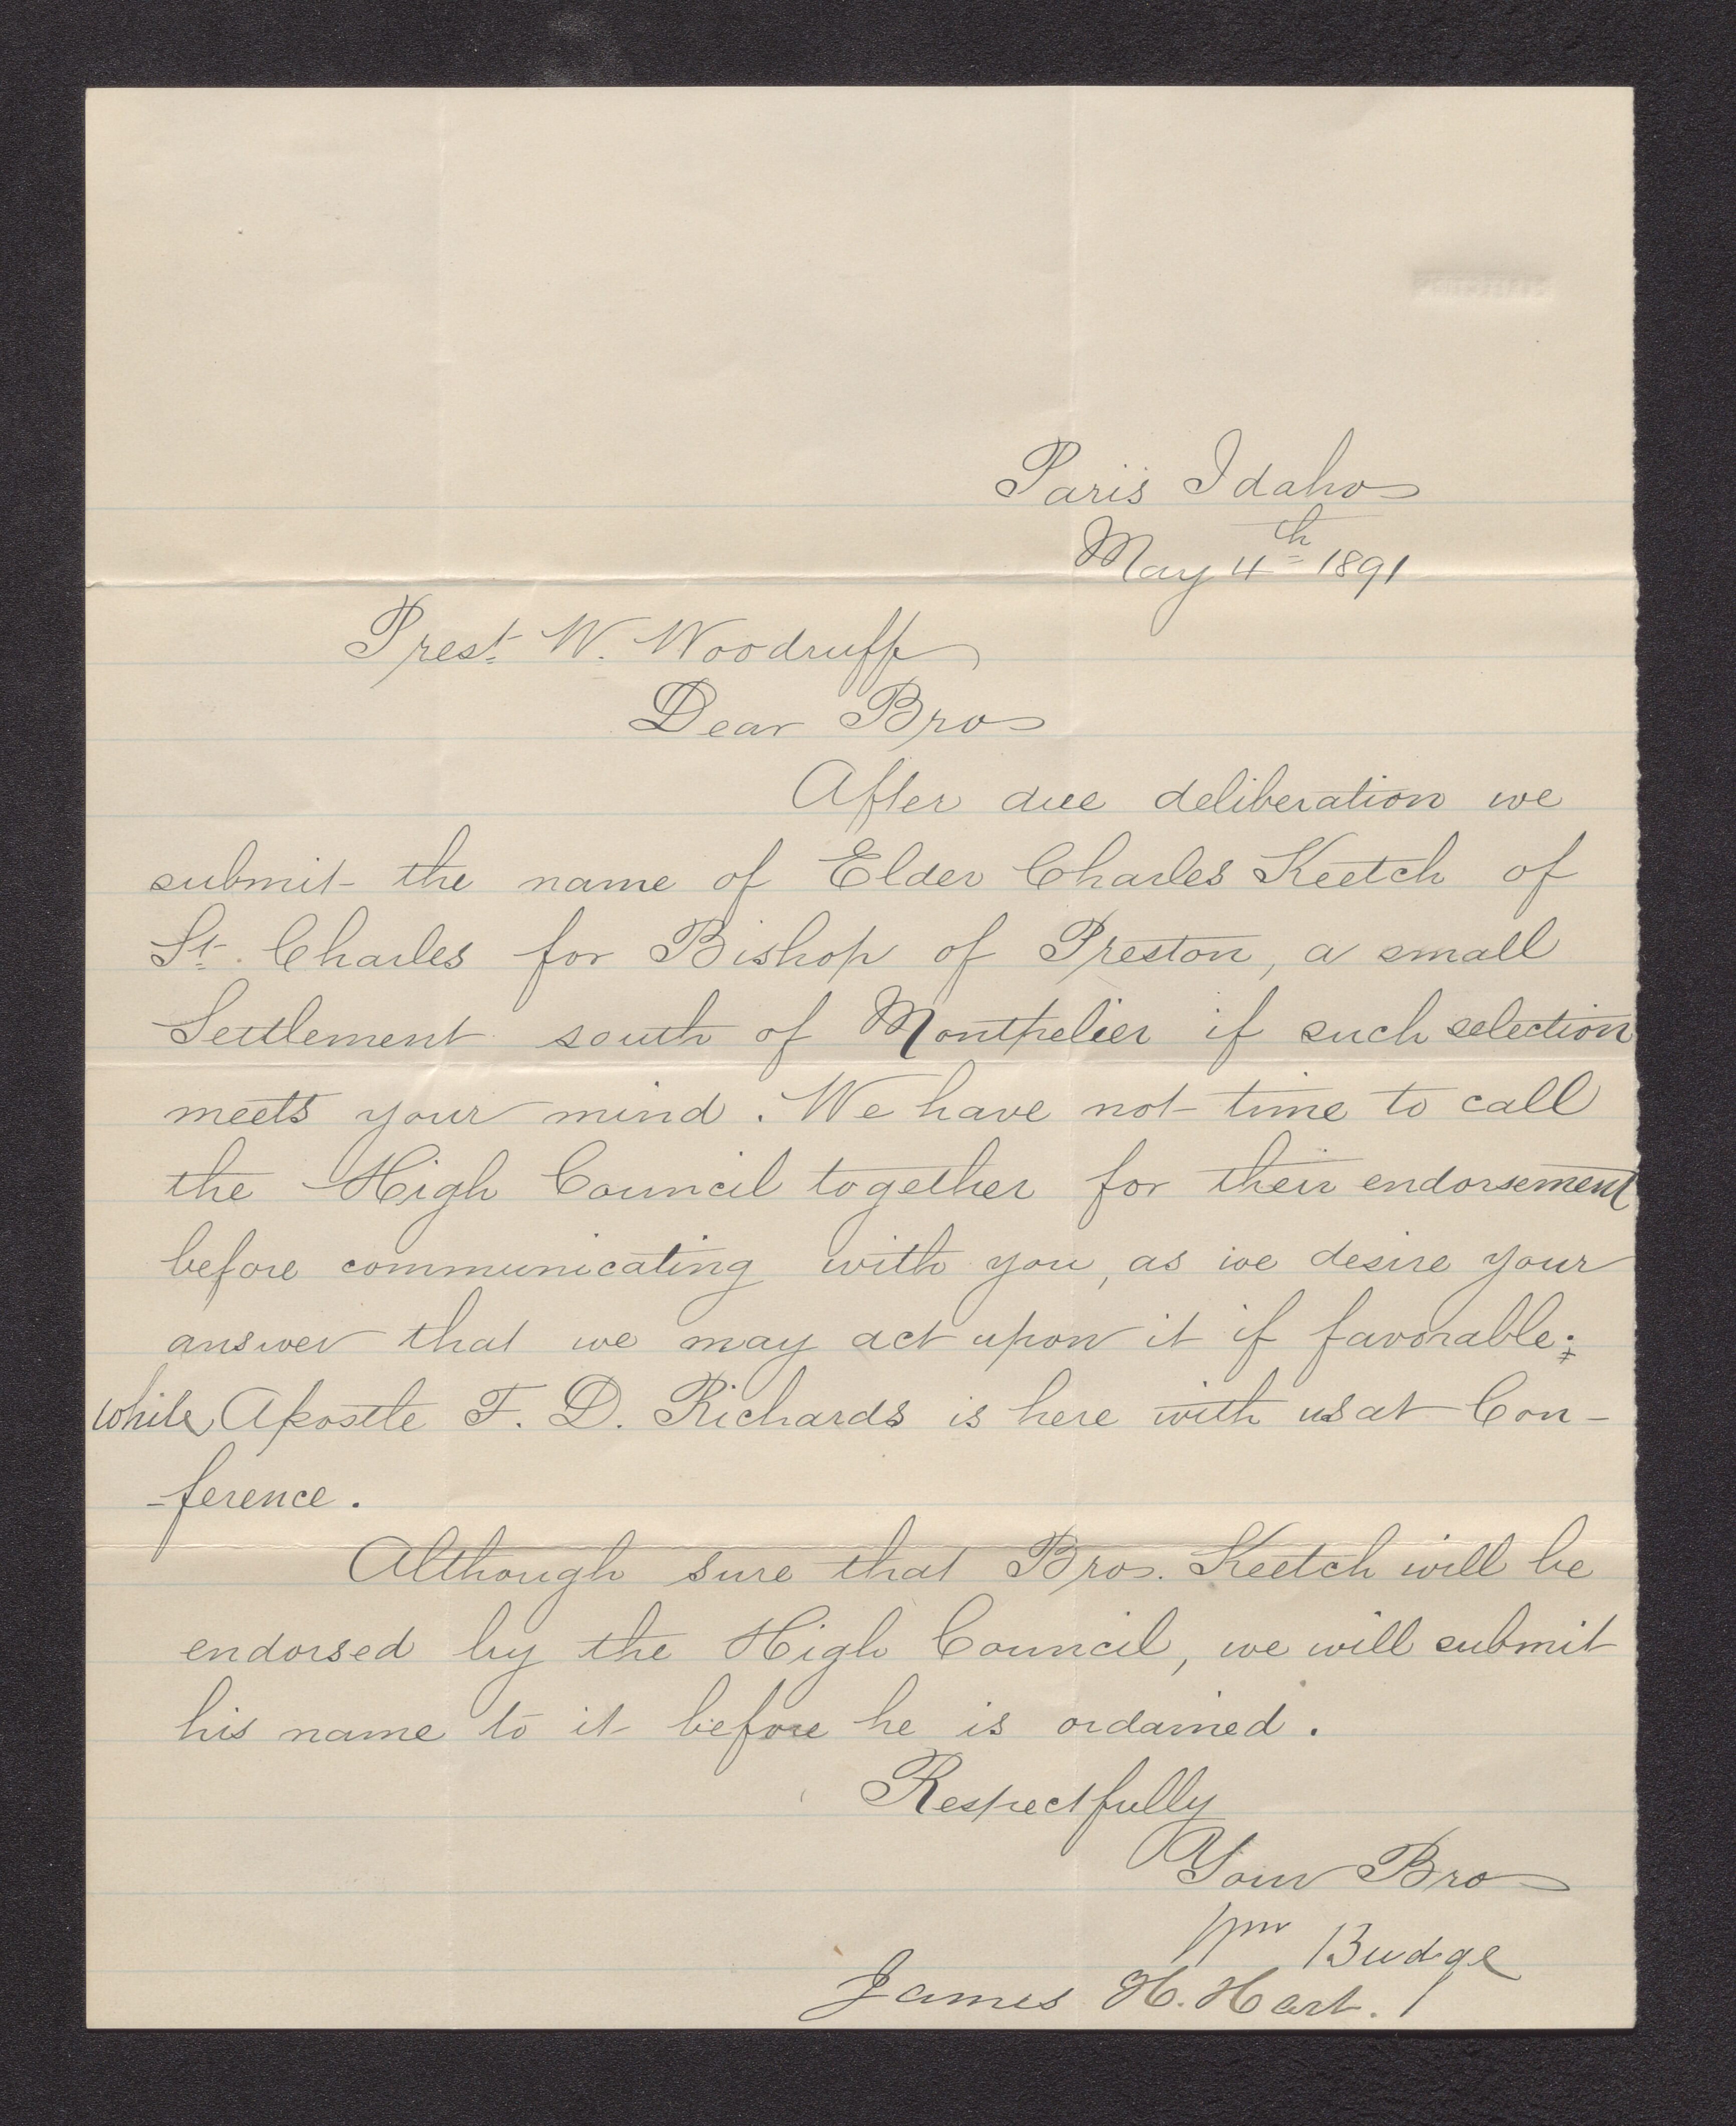 Paris Idaho
May 4th 1891
Prest. W. Woodruff
Dear Bro
After due deliberation we
submit the name of Elder Charles Keetch of
St. Charles for Bishop of Preston, a small
Settlement south of Montpelier if such selection
meets your mind. We have not time to call
the High Council together for their endorsement
before communicating with you, as we desire your
answer that we may act upon it if favorable;
while Apostle F. D. Richards is here with us at Con-
-ference.
Although sure that Bro. Keetch will be
endorsed by the High Council, we will submit
his name to it before he is ordained.
Respectfully
Your Bro
Wm Budge
James H. Hart.